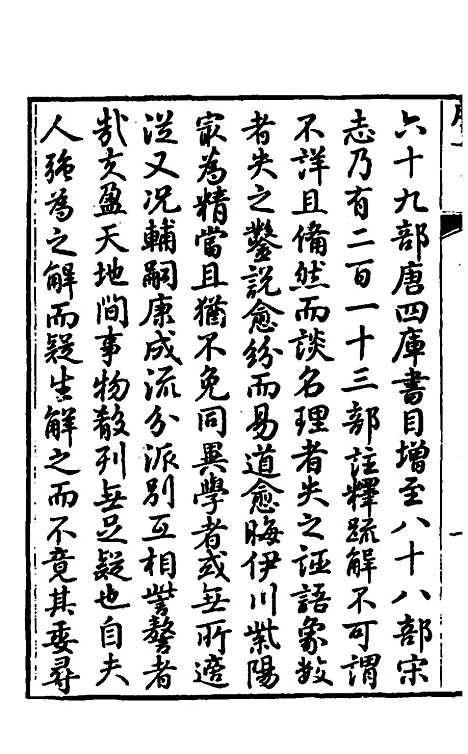 六十九部唐四庫書目增至八十八部宋
志乃有二百一十三部註釋疏解不可謂
不詳且備然而談名理者失之誣語象數
者失之鑿說愈紛而易道愈晦伊川紫陽
㝡為精當且猶不免同異學者或無所適
從又况輔嗣康成流分派別互相訾謷者
哉夫盈天地間事物散列無足疑也自夫
人強為之解而疑生解之而不竟其委尋